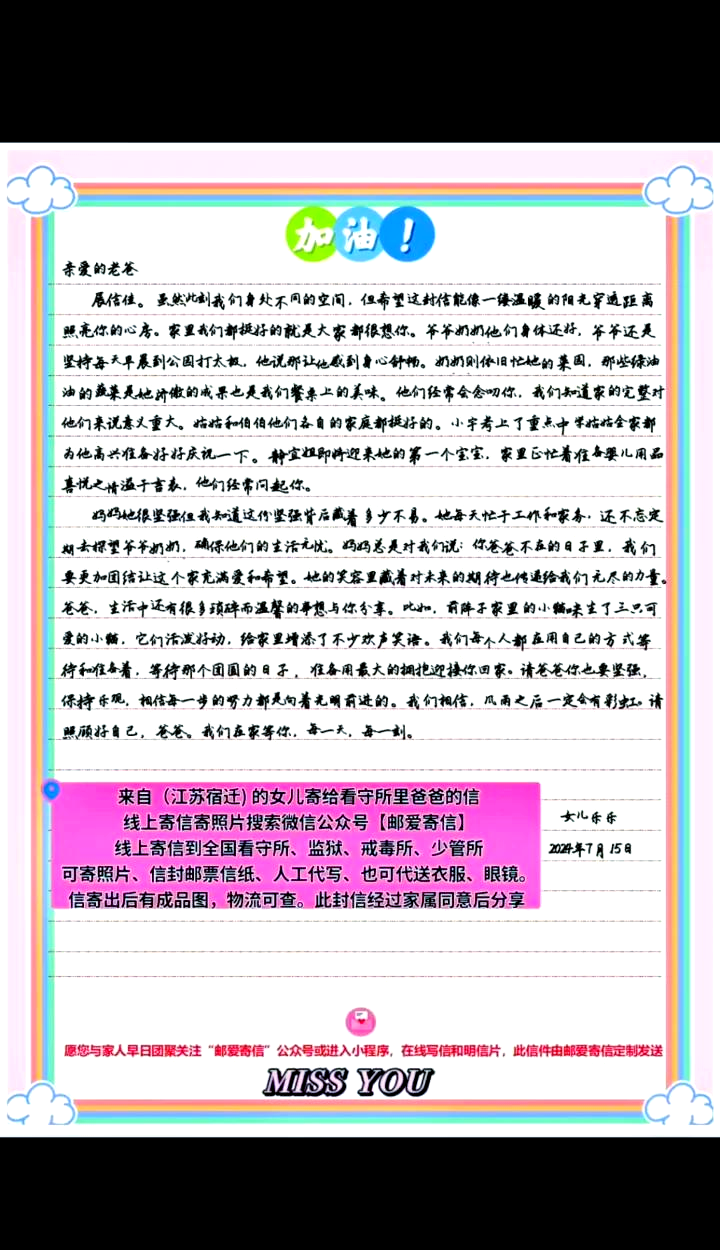 加油！
亲爱的老爸
展信佳。虽然此刻我们身处不同的空间，但希望这封信能像一缕温暖的阳光穿透距离
照亮你的心房。家里我们都挺好的就是大家都很想你。爷爷奶奶他们身体还好，爷爷还是
坚持每天早晨到公园打太极，他说那让他感到身心舒畅。奶奶则依旧忙她的菜园，那些绿油
油的蔬菜是她骄傲的成果也是我们餐桌上的美味。他们经常会念叨你，我们知道家的完整对
他们来说意义重大。姑姑和伯伯他们各自的家庭都挺好的。小宇考上了重点中学姑姑全家都
为他高兴准备好好庆祝一下。静宜姐即将迎来她的第一个宝宝，家里正忙着准备婴儿用品
喜悦之情溢于言表，他们经常问起你。
妈妈她很坚强但我知道这份坚强背后藏着多少不易。她每天忙于工作和家务，还不忘定
期去探望爷爷奶奶，确保他们的生活无忧。妈妈总是对我们说：你爸爸不在的日子里，我们
要更加团结让这个家充满爱和希望。她的笑容里藏着对未来的期待也传递给我们无尽的力量。
爸爸，生活中还有很多琐碎而温馨的事想与你分享。比如，前阵子家里的小猫咪生了三只可
爱的小猫，它们活泼好动，给家里增添了不少欢声笑语。我们每个人都在用自己的方式等
待和准备着，等待那个团圆的日子，准备用最大的拥抱迎接你回家。请爸爸你也要坚强，
保持乐观，相信每一步的努力都是向着光明前进的。我们相信，风雨之后一定会有彩虹。请
照顾好自己，爸爸。我们在家等你，每一天，每一刻。
女儿乐乐
2024年7月15日
来自（江苏宿迁)的女儿寄给看守所里爸爸的信
线上寄信寄照片搜索微信公众号【邮爱寄信】
线上寄信到全国看守所、监狱、戒毒所、少管所
可寄照片、信封邮票信纸、人工代写、也可代送衣服、眼镜。
信寄出后有成品图，物流可查。此封信经过家属同意后分享
愿您与家人早日团聚关注“邮爱寄信”公众号或进入小程序，在线写信和明信片，此信件由邮爱寄信定制发送
MISS YOU